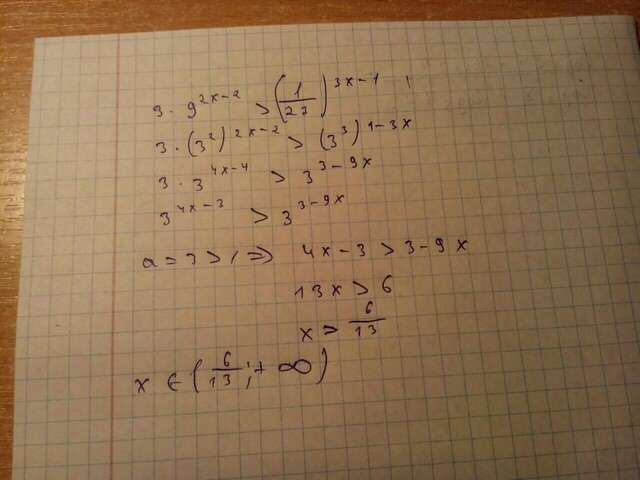 3 · 9^{2x-2} > (1/27)^{3x-1}
3 · (3^2)^{2x-2} > (3^3)^{1-3x}
3 · 3^{4x-4} > 3^{3-9x}
3^{4x-3} > 3^{3-9x}
a = 3 > 1 => 4x - 3 > 3 - 9x
13x > 6
x > 6/13
x ∈ (6/13; + ∞)